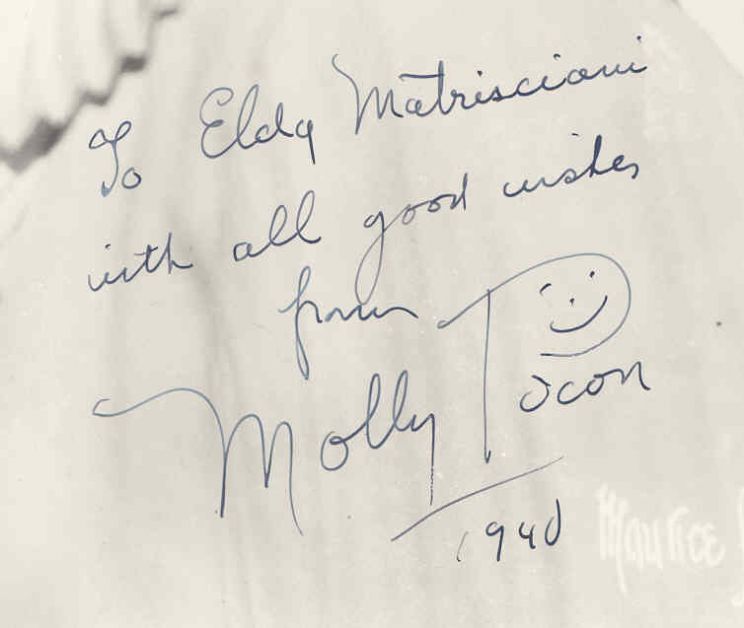 To Elda Matrisciani
with all good wishes
from
Molly Picon
1940
Maurice